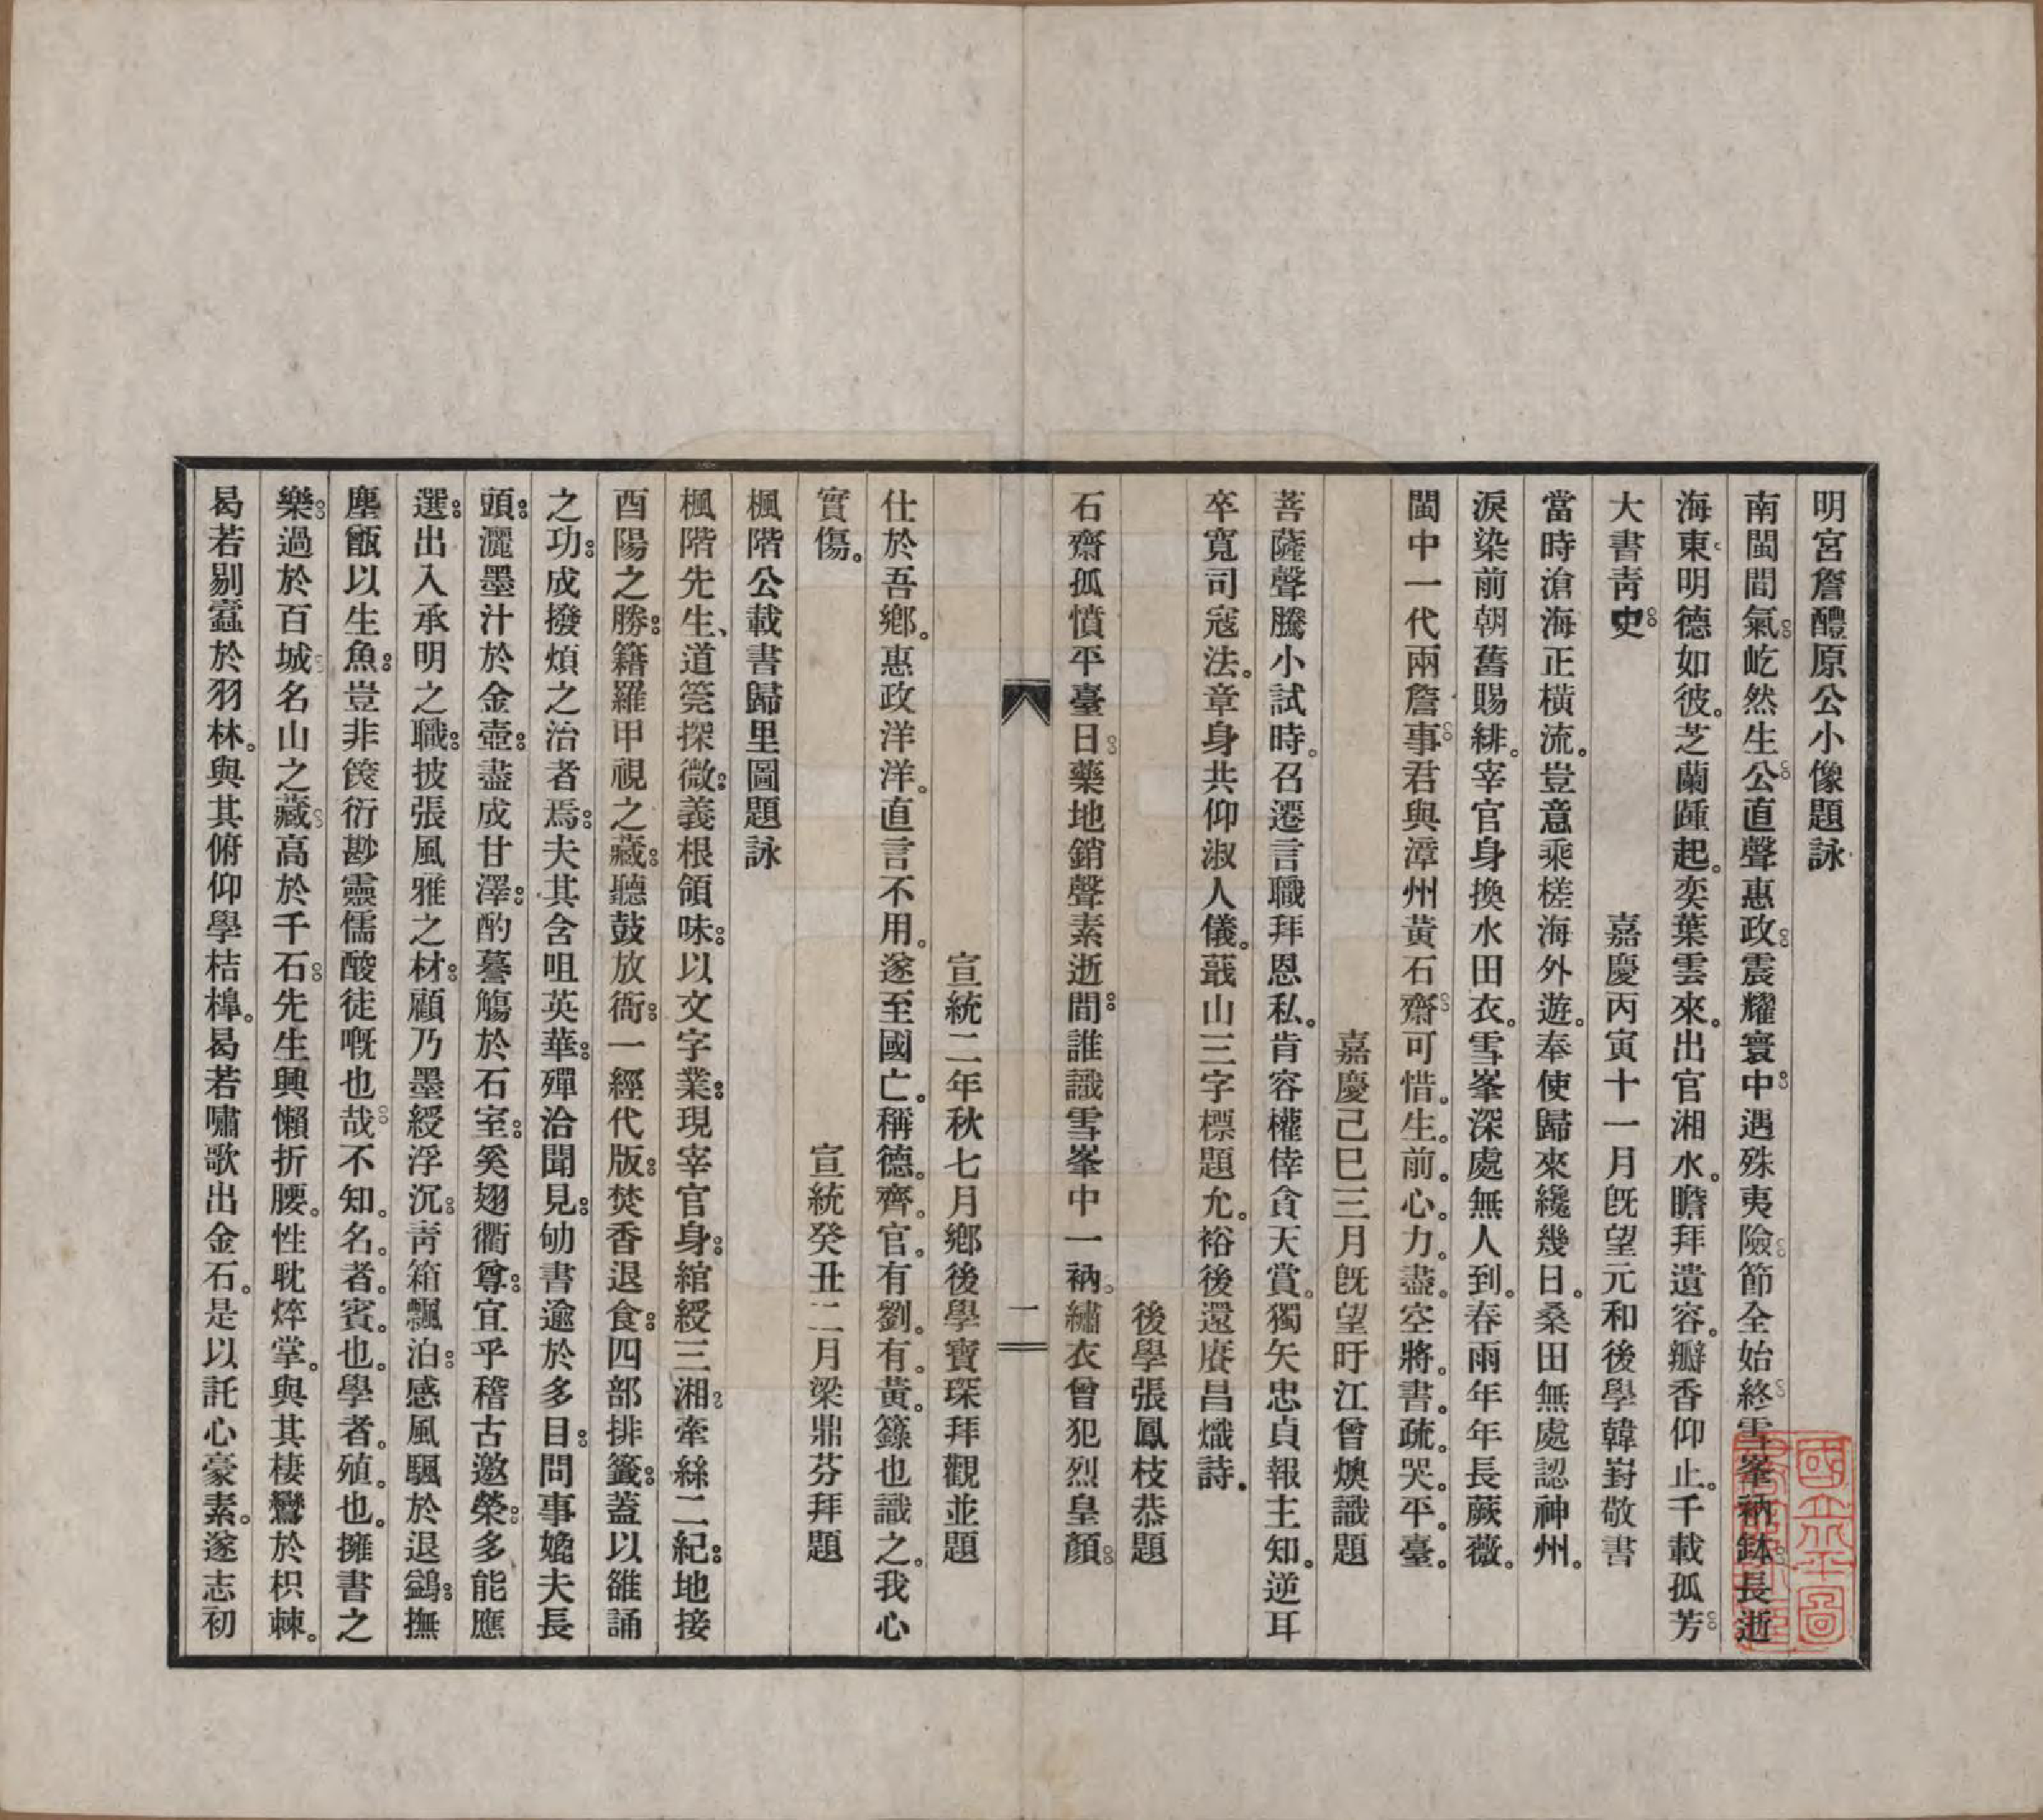 明宮詹醴原公小像題詠
南閩間氣屹然生公直聲惠政震耀寰中遇殊夷險節全始終雪峯衲鉢長逝
海東明德如彼芝蘭踵起奕葉雲來出官湘水瞻拜遺容瓣香仰止千載孤芳
大書靑史　嘉慶丙寅十一月旣望元和後學韓崶敬書
當時滄海正橫流豈意乘槎海外遊奉使歸來纔幾日桑田無處認神州
淚染前朝舊賜緋宰官身換水田衣雪峯深處無人到春雨年年長蕨薇
閩中一代兩詹事君與漳州黃石齋可惜生前心力盡空將書疏哭平臺
嘉慶己巳三月旣望盱江曾燠識題
菩薩聲騰小試時召遷言職拜恩私肯容權倖貪天賞獨矢忠貞報主知逆耳
卒寬司寇法章身共仰淑人儀蕺山三字標題允裕後還賡昌熾詩
後學張鳳枝恭題
石齋孤憤平臺日藥地銷聲素逝間誰識雪峯中一衲繡衣曾犯烈皇顏
二
宣統二年秋七月鄉後學寶琛拜觀並題
仕於吾鄉惠政洋洋直言不用遂至國亡稱德齊官有劉有黃籙也識之我心
實傷　宣統癸丑二月梁鼎芬拜題
楓階公載書歸里圖題詠
楓階先生道筦探微義根領味以文字業現宰官身綰綬三湘牽絲二紀地接
酉陽之勝籍羅甲視之藏聽鼓放衙一經代版焚香退食四部排籤蓋以雒誦
之功成撥煩之治者焉夫其含咀英華殫洽聞見劬書逾於多目問事媿夫長
頭灑墨汁於金壺盡成甘澤酌蕓觴於石室奚翅衢尊宜乎稽古邀榮多能應
選出入承明之職披張風雅之材顧乃墨綬浮沉靑箱飄泊感風颿於退鷁撫
塵甑以生魚豈非篋衍尠靈儒酸徒嘅也哉不知名者賓也學者殖也擁書之
樂過於百城名山之藏高於千石先生興懶折腰性耽焠掌與其棲鸞於枳棘
曷若剔蠹於羽林與其俯仰學桔橰曷若嘯歌出金石是以託心豪素遂志初